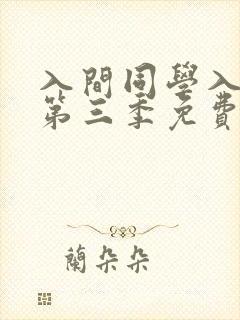 入間同學入
第三季免費
蘭朵朵